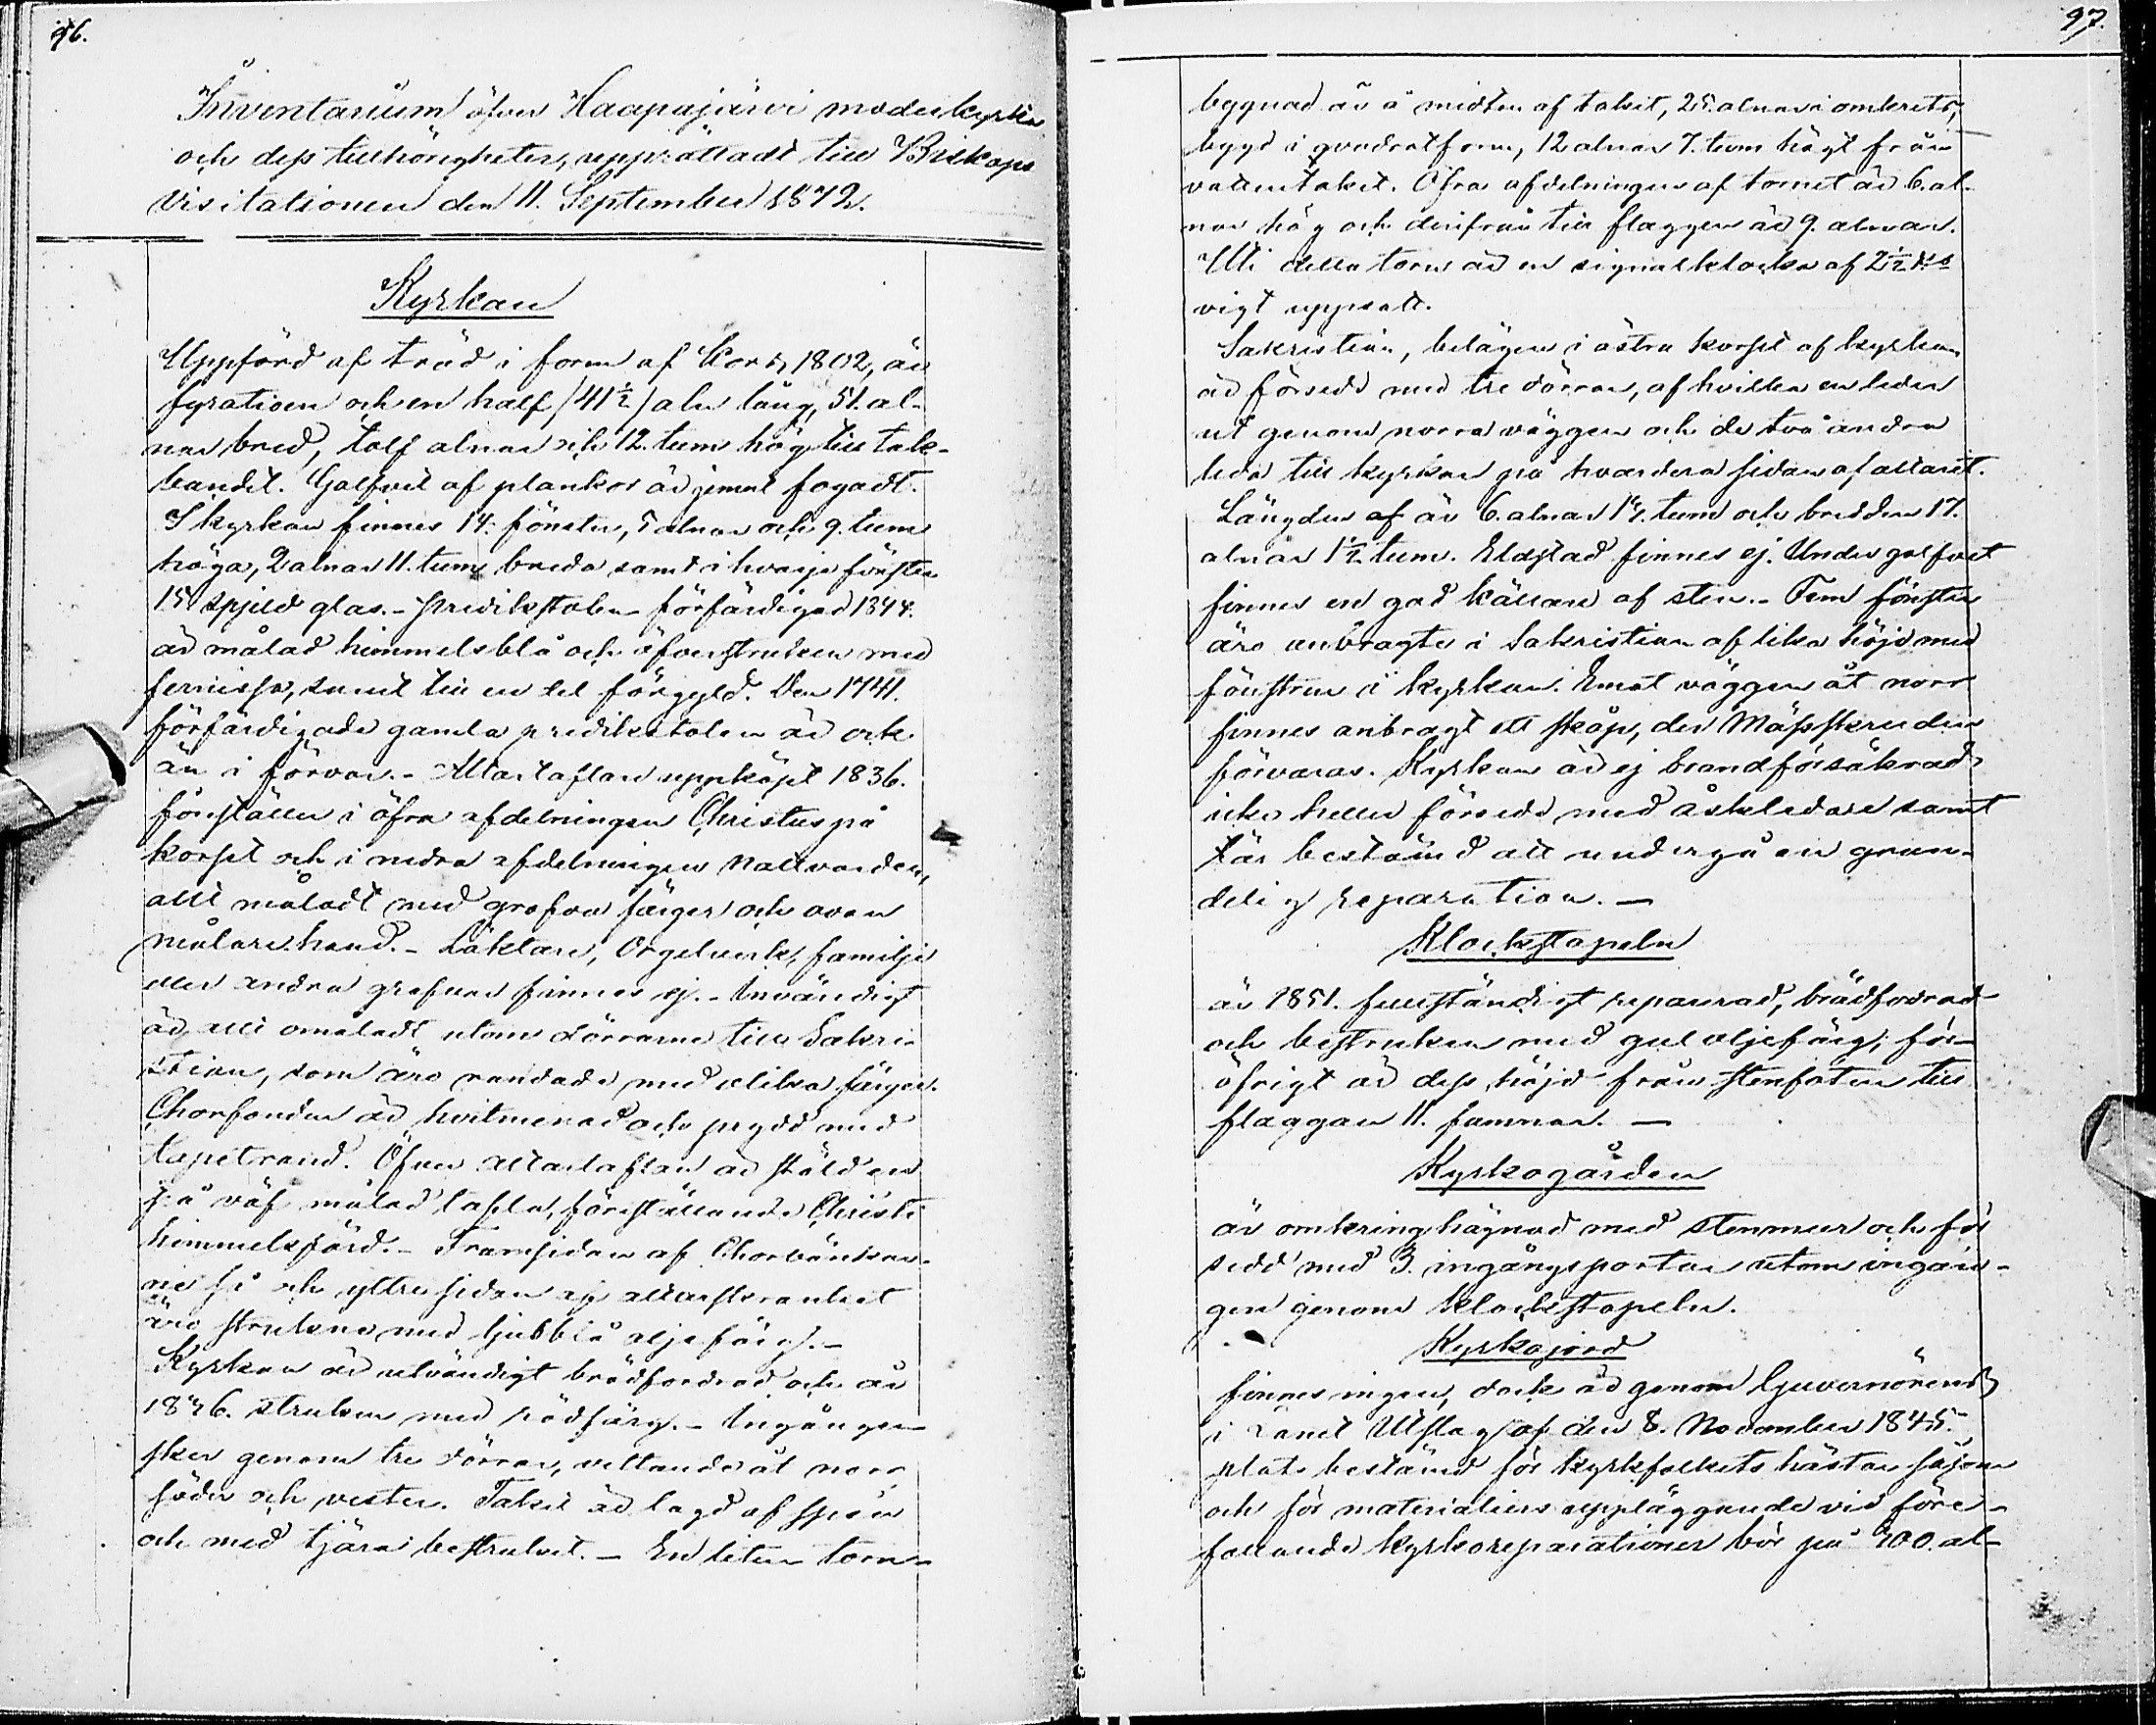 96.
Inventarium öfver Haapajärvi moderkyrka
och dess tillhörigheter, upprättadt till Biskops
visitationen den 11. September 1872.
Kyrkan
Uppförd af träd i form af Kors 1802, är
fyratioen och en half (41 ½) aln lång, 51. al-
nar bred, tolf alnar och 12. tum hög till tak-
bandet. Golfvet af plankor är jemnt fogadt.
I kyrkan finnes 14. fönster, 5 alnar och 9. tum
höga, 2 alnar 11. tum breda samt i hvarje fönster
15 spjeld glas. - Predikstolen förfärdigad 1844.
är målad himmelsblå och öfverstruken med
fernissa, samt till en del förgyld. Den 1741.
förfärdigade gamla predikstolen är ock
än i förvar. - Altartaflan uppköpt 1836.
föreställer i öfra afdelningen Christus på
korset och i nedra afdelningen Nattvarden,
allt måladt med grofva färger och ovan
målare hand. - Läktare, Orgelverk, familje
eller andra grafvar finnes ej. - Invändigt
är allt omåladt utom dörrarne till Sakri-
stian, som äro randade med olika färger.
Chorfonden är hvitmenad och prydd med
tapetrand. Öfver altartaflan är stäld en
på väf målad tafla, föreställande Christi
himmelsfärd. - Framsidan af Chorbänkar-
ne så och yttre sidan af altarskranket
äro strukne med ljusblå oljefärg. -
Kyrkan är utvändigt brädfordrad och år
1846. struken med rödfärg. - Ingången
sker genom tre dörrar, vettande åt norr
söder och vester. Taket är lagd af spån
och med tjära bestruket. - En liten torn-
97.
byggnad är å midten af taket, 25. alnar i omkrets,
bygd i qvadratform, 12 alnar 7. tum högt från
vattentaket. Öfra afdelningen af tornet är 6. al-
nar hög och derifrån till flaggen är 9. alnar.
Uti detta torn är en signalklocka af 2 ½
vigt uppsatt.
Sakristian, belägen i östra korset af kyrkan
är försedd med tre dörrar, af hvilka en leder
ut genom norra väggen och de två andra
leda till kyrkan på hvardera sidan af altaret.
Längden af är 6. alnar 14. tum och bredden 17.
alnar 1 ½ tum. Eldstad finnes ej. Under golfvet
finnes en god källare af sten. - Fem fönster
äro anbragte i Sakristian af lika höjd med
fönstren i kyrkan. Emot väggen åt norr
finnes anbragt ett skåp, der Mässskruden
förvaras. Kyrkan är ej brandförsäkrad,
icke heller försedd med åskledare samt
är bestämd att undergå en grun-
delig reparation. -
Klockstapeln
är 1851. fullständigt reparerad, brädfodrad
och bestruken med gul oljefärg; för
öfrigt är dess höjd från stenfoten till
flaggan 11. famnar. -
Kyrkogården
är omkringhägnad med stenmur och för
sedd med 3. ingångsportar utom ingån-
gen genom klockstapeln.
Kyrkojord
finnes ingen, dock är genom Guvernörens
i Länet Utslag af den 8. November 1845.
plats bestämd för kyrkfolkets hästar såsom
och för materialiers uppläggande vid före-
fallande kyrkoreparationer bör på 400. al-